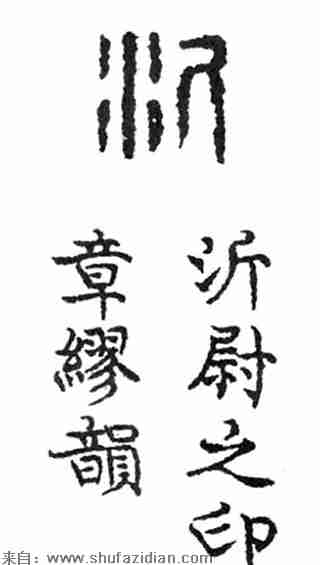 沂
沂尉之印
章缪韻
来自：www.shufazidian.com